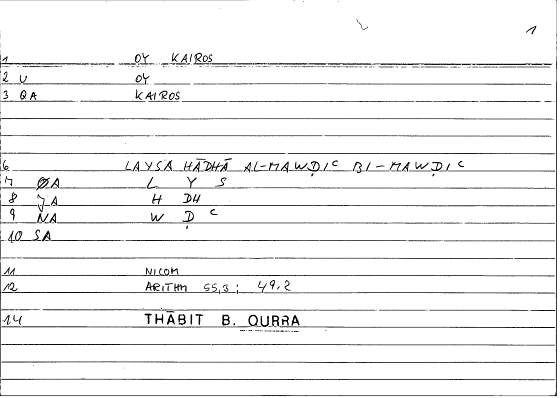 1
1 OY KAIROS
2 U OY
3 QA KAIROS
6 LAYSA HĀDHĀ AL-MAWḌIᶜ BI-MAWḌIᶜ
7 ØA L Y S
8 JA H DH
9 NA W Ḍ ᶜ
10 SA
11 NICOM
12 ARITHM 55,3; 49,2
14 THĀBIT B. QURRA